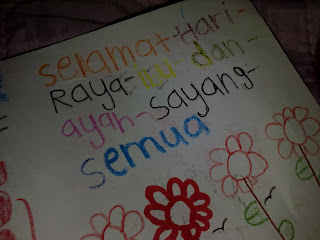 selamat-Hari-
Raya-ibu-dan-
ayah-sayang-
semua